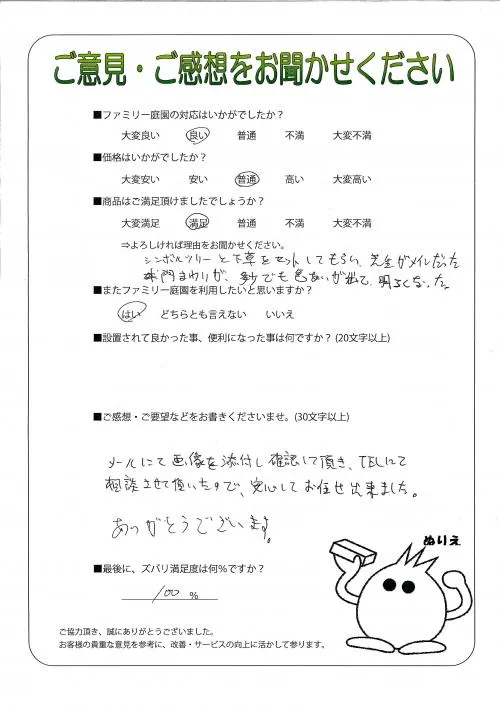 ご意見・ご感想をお聞かせください
■ファミリー庭園の対応はいかがでしたか？
大変良い 良い 普通 不満 大変不満
■価格はいかがでしたか？
大変安い 安い 普通 高い 大変高い
■商品はご満足頂けましたでしょうか？
大変満足 満足 普通 不満 大変不満
⇒よろしければ理由をお聞かせください。
シンボルツリーと下草をセットしてもらい、がメインだった
門まわりが、でも色あいが出て、明るくなった。
■またファミリー庭園を利用したいと思いますか？
はい どちらとも言えない いいえ
■設置されて良かった事、便利になった事は何ですか？(20文字以上)
■ご感想・ご要望などをお書きくださいませ。(30文字以上)
メールにて画像を添付し確認して頂き、TELにて
相談させて頂いたので、安心してお任せ出来ました。
ありがとうございます。
ぬりえ
■最後に、ズバリ満足度は何％ですか？
100 %
ご協力頂き、誠にありがとうございました。
お客様の貴重な意見を参考に、改善・サービスの向上に活かして参ります。